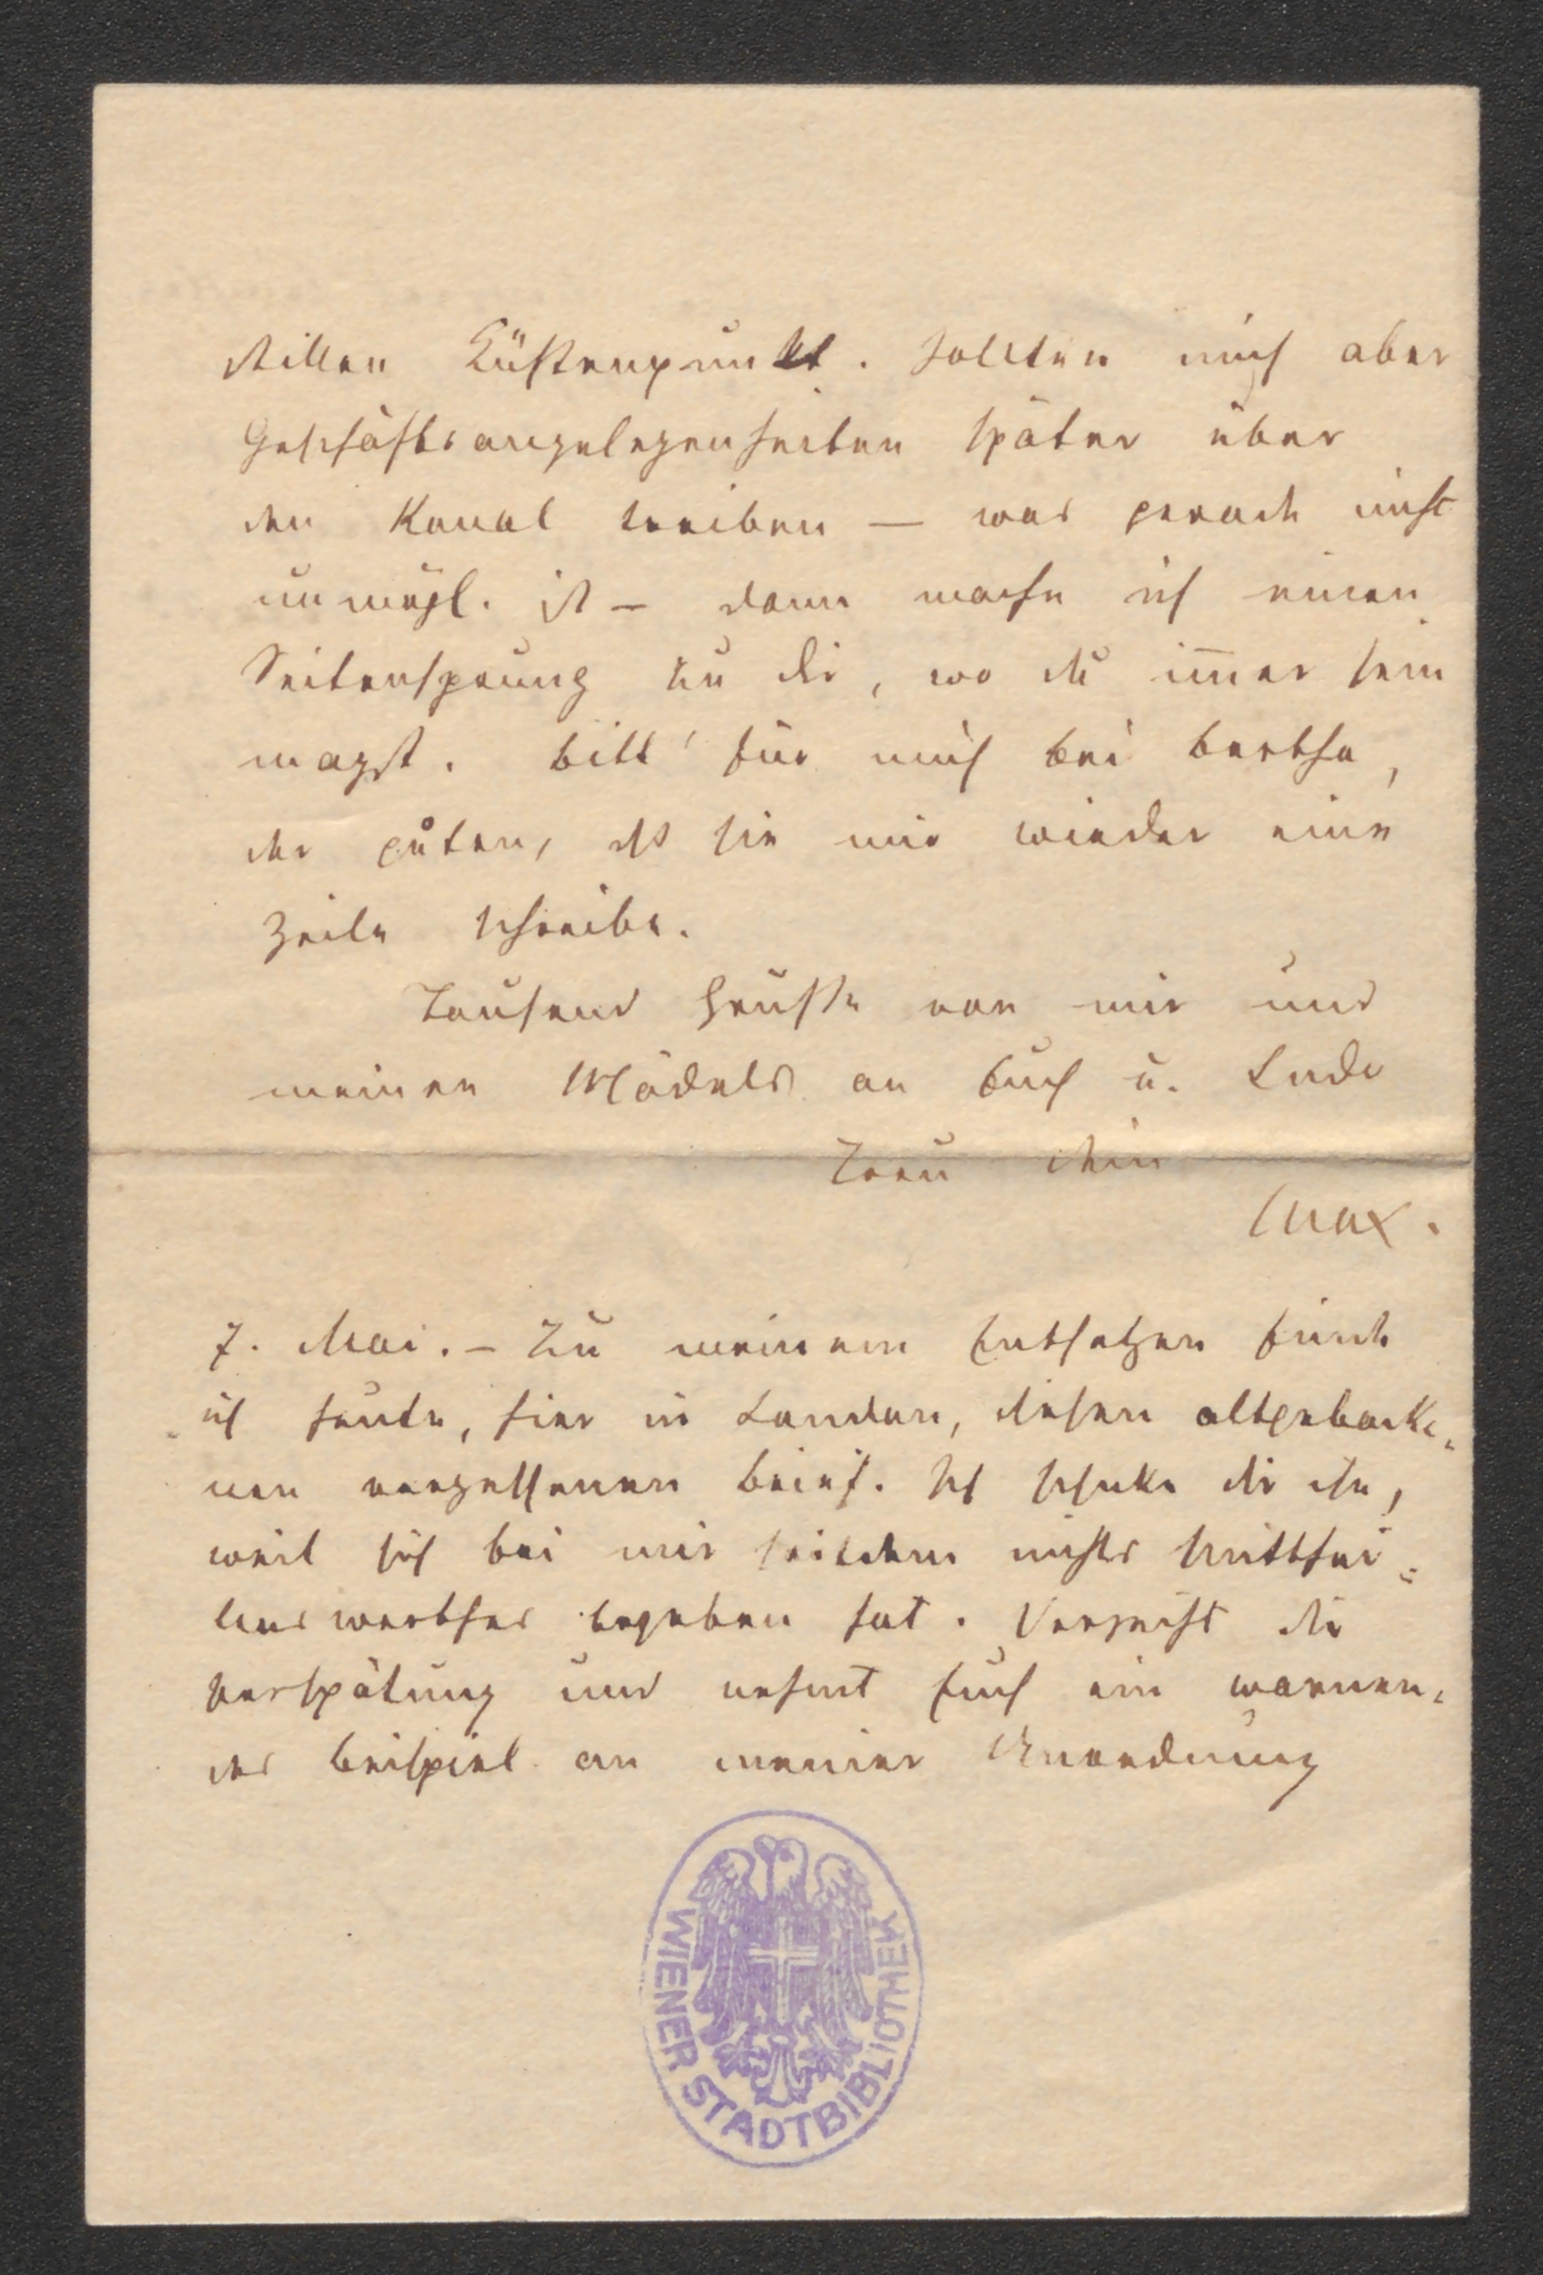 stillen Küstenpunkt. Sollten mich aber
Geschäftsangelegenheiten später über
den Kanal treiben — was gerade nicht
unmögl. ist – dann mache ich einen
Seitensprung zu dir, wo du im̄er sein
magst. Bitt' für mich bei Bertha,
der guten, dß sie mir wieder eine
Zeile schreibe.
Tausend Grüsse von mir und
meinen Mädels an Euch u.
Treu dein
Max.
7. Mai. – Zu meinem Entsetzen finde
ich heute, hier in London, diesen altgebacke=
nen vergessenen Brief. Ich schicke dir ihn,
weil sich bei mir seitdem nichts Mitthei=
lenswerthes begeben hat. Verzeiht die
Verspätung und nehmt Euch ein warnen=
des Beispiel an meiner Unordnung
WIENER STADTBIBLIOTHEK